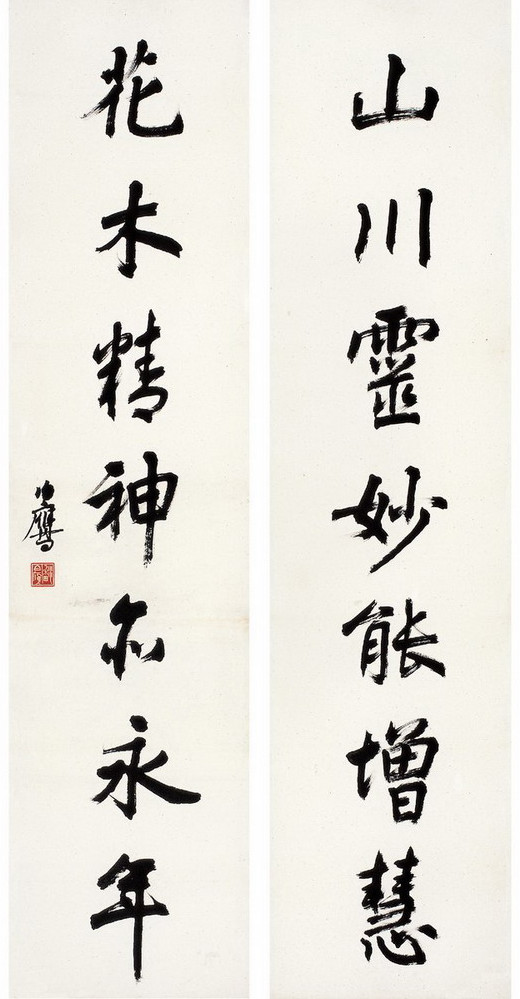 山川靈妙能增慧
花木精神亦永年
冷鷹